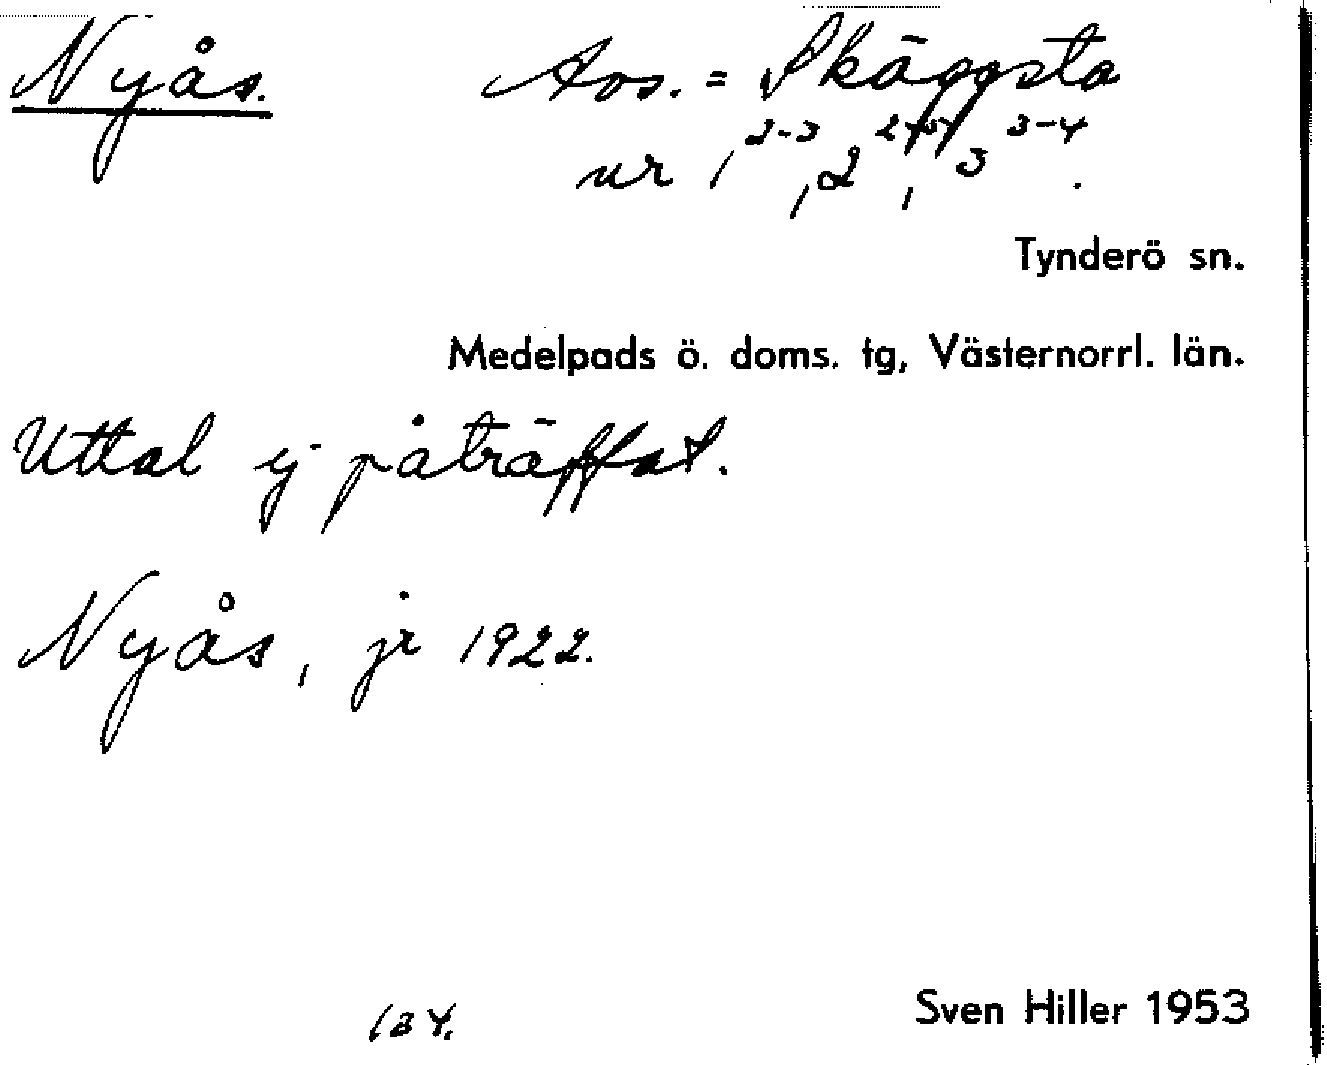 Nyås. Avs. = Skäggsta
nr 1 2-3, 2 2+5, 3 3-4.
Tynderö sn.
Medelpads ö. doms. tg, Västernorrl. län.
Uttal ej påträffat.
Nyås, jr 1922.
134.
Sven Hiller 1953